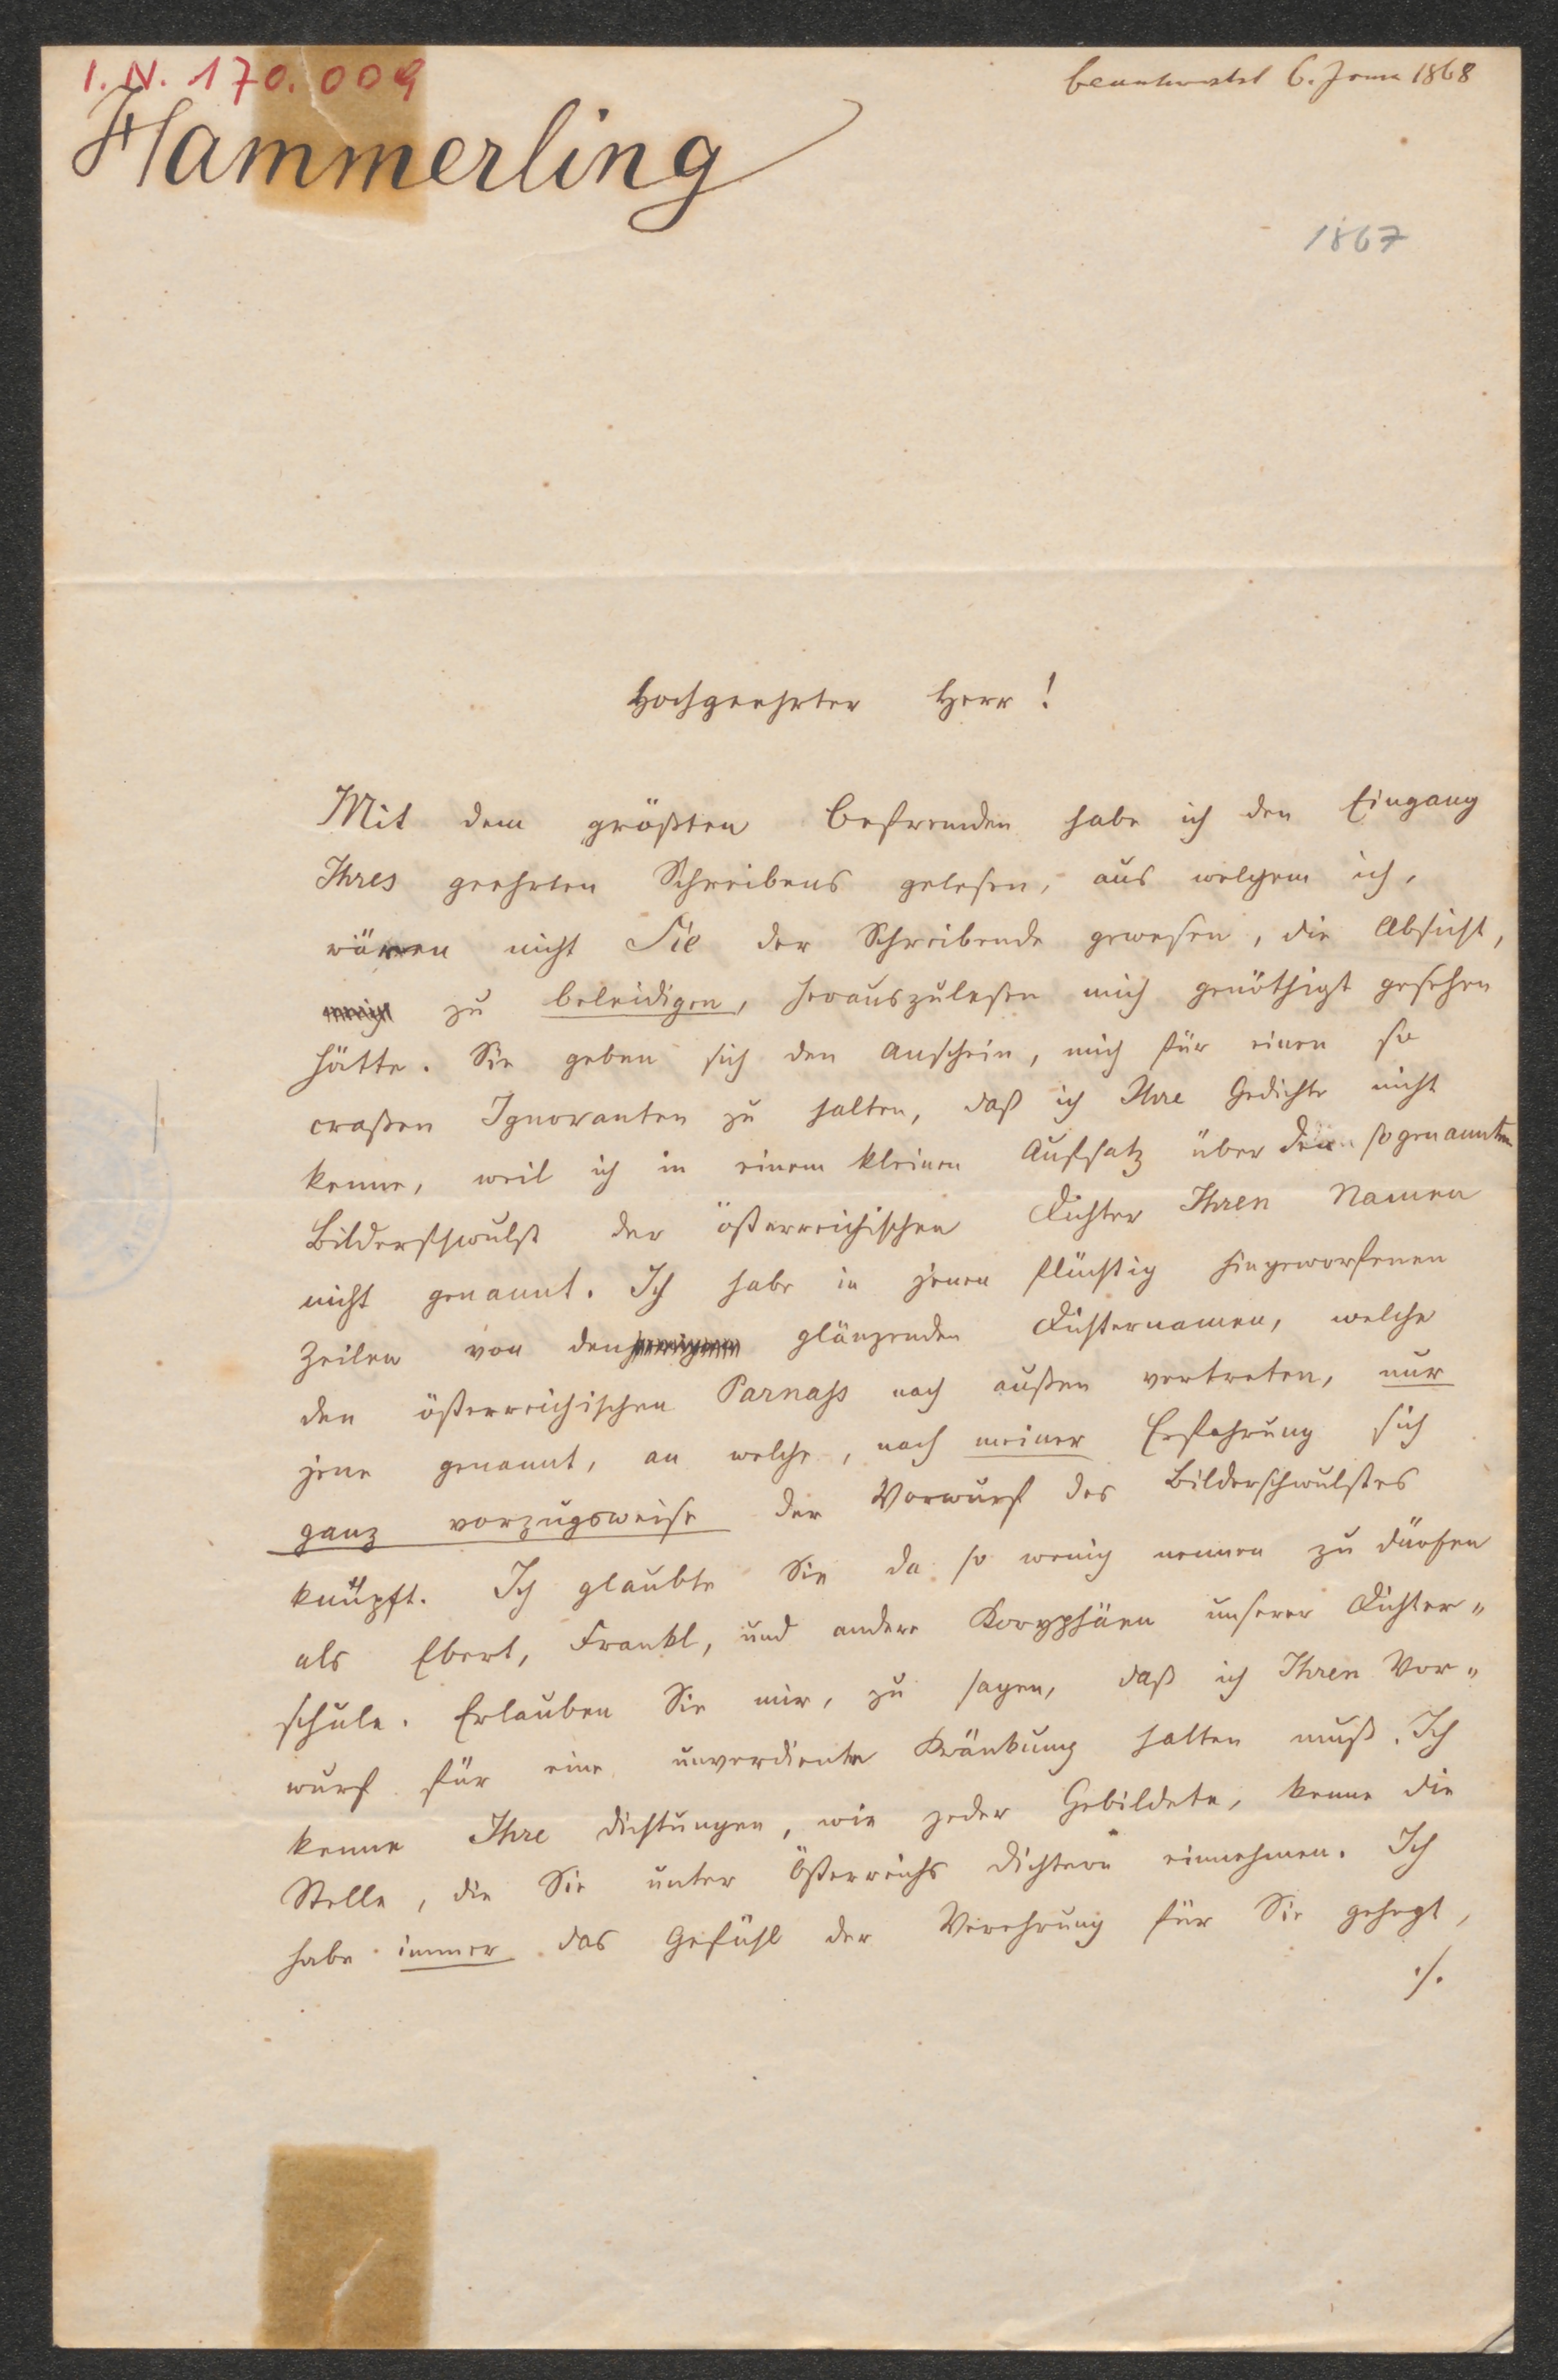 I.N. 170.009
beantwortet 6. Janu 1868
Hammerling
1867
Hochgeehrter Herr!
Mit dem größten Befremden habe ich den Eingang
Ihres geehrten Schreibens gelesen, aus welchem ich,
wären nicht Sie der Schreibende gewesen, die Absicht,
mich zu beleidigen, herauszulesen mich genöthigt gesehen
hätte. Sie geben sich den Anschein, mich für einen so
craßen Ignoranten zu halten, daß ich Ihre Gedichte nicht
kenne, weil ich in einem kleinen Aufsatz über den sogenannten
Bilderschwulst der österreichischen Dichter Ihren Namen
nicht genannt. Ich habe in jenen flüchtig hingeworfenen
Zeilen von denjenigen glänzenden Dichternamen, welche
den österreichischen Parnass nach außen vertreten, nur
jene genannt, an welche, nach meiner Erfahrung sich
ganz vorzugsweise der Vorwurf des Bilderschwulstes
knüpft. Ich glaubte Sie da so wenig nennen zu dürfen
als Ebert, Frankl, und andere Koryphäen unserer Dichter„
schule. Erlauben Sie mir, zu sagen, daß ich Ihren Vor„
wurf für eine unverdiente Kränkung halten muß. Ich
kenne Ihre Dichtungen, wie jeder Gebildete, kenne die
Stelle, die Sie unter Österreichs Dichtern einnehmen. Ich
habe immer das Gefühl der Verehrung für Sie gehegt,
./.